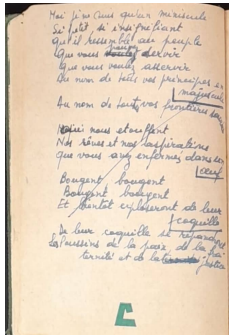 Moi je ne suis qu'un minuscule
Si petit, si insignifiant
Qu'il ressemble au peuple
Que vous pensez servir
Que vous voulez asservir
Au nom de tous vos principes en
majuscule
Au nom de toutes vos frontières
Mais nous étouffent
Nos rêves et nos aspirations
Que vous avez enfermés dans un
œuf
Bougent, bougent
Bougent, bougent
Et bientôt exploseront de leur
coquille
De leur coquille se répandront
Les poussins de la paix, de la fra-
ternité et de la justice